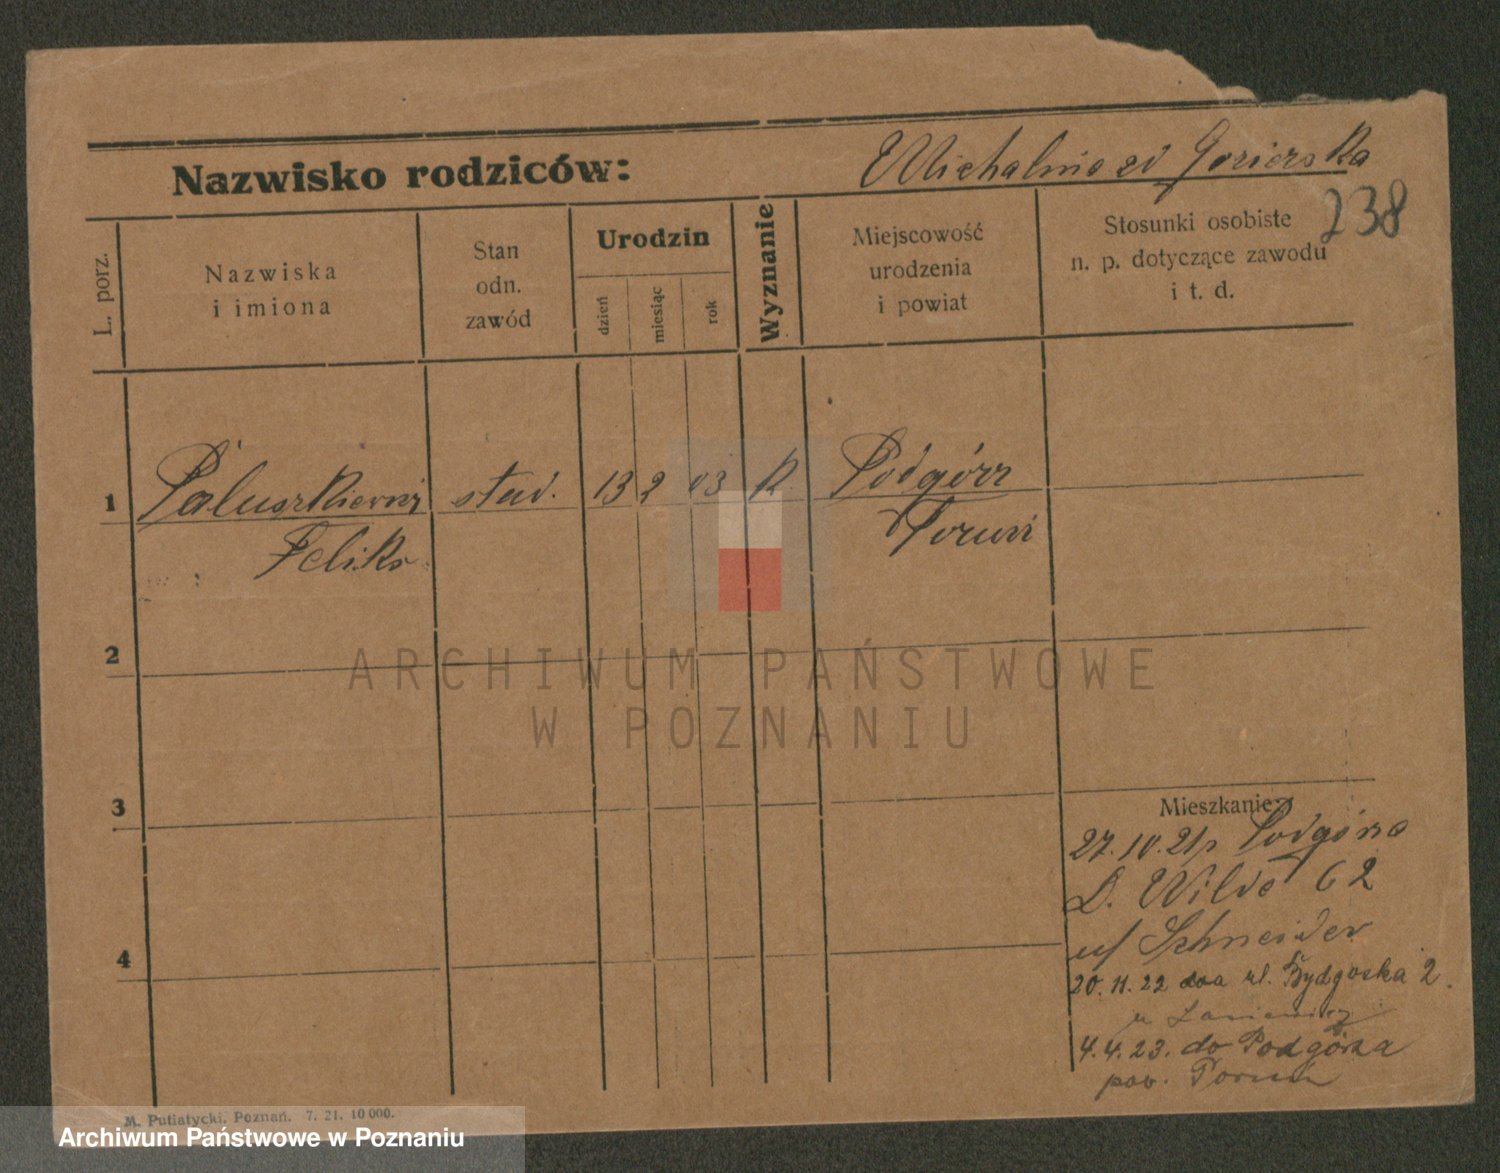 Nazwisko rodziców:
Michalina zd Gozierska
238
L. porz.
Nazwiska
i imiona
Stan
odn.
zawód
Urodzin
dzień
miesiąc
rok
Wyznanie
Miejscowość
urodzenia
i powiat
Stosunki osobiste
n. p. dotyczące zawodu
i t. d.
1 Paluszkiewicz stud. 13 2 03 R. Podgórz
Feliks Toruń
2
3
4
Mieszkanie:
27.10.21 z Podgórza
D. Wilde 62
u/ Schneider
20.11.22 ul. Bydgoska 2.
u
4.4.23. do Podgórza
pow. Toruń
M. Putiatycki, Poznań. 7. 21. 10 000.
ARCHIWUM PAŃSTWOWE
W POZNANIU
Archiwum Państwowe w Poznaniu